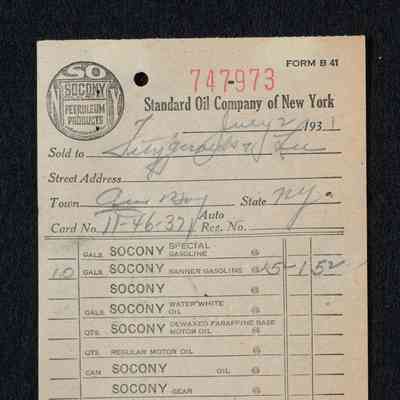 FORM B 41
SO
SOCONY
PETROLEUM
PRODUCTS
747-973
Standard Oil Company of New York
July 2 1931
Sold to
Street Address
Town State N.Y.
Card No. 11-46-37 Auto Reg. No.
GALS SOCONY SPECIAL GASOLINE @
10 GALS SOCONY BANNER GASOLINE @ 15- 1 52
SOCONY
GALS SOCONY WATER WHITE OIL @
QTS. SOCONY DEWAXED PARAFFINE BASE MOTOR OIL @
QTS. REGULAR MOTOR OIL @
CAN SOCONY OIL @
SOCONY GEAR